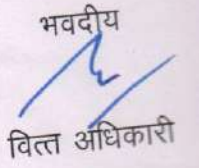 भवदीय
वित्त अधिकारी